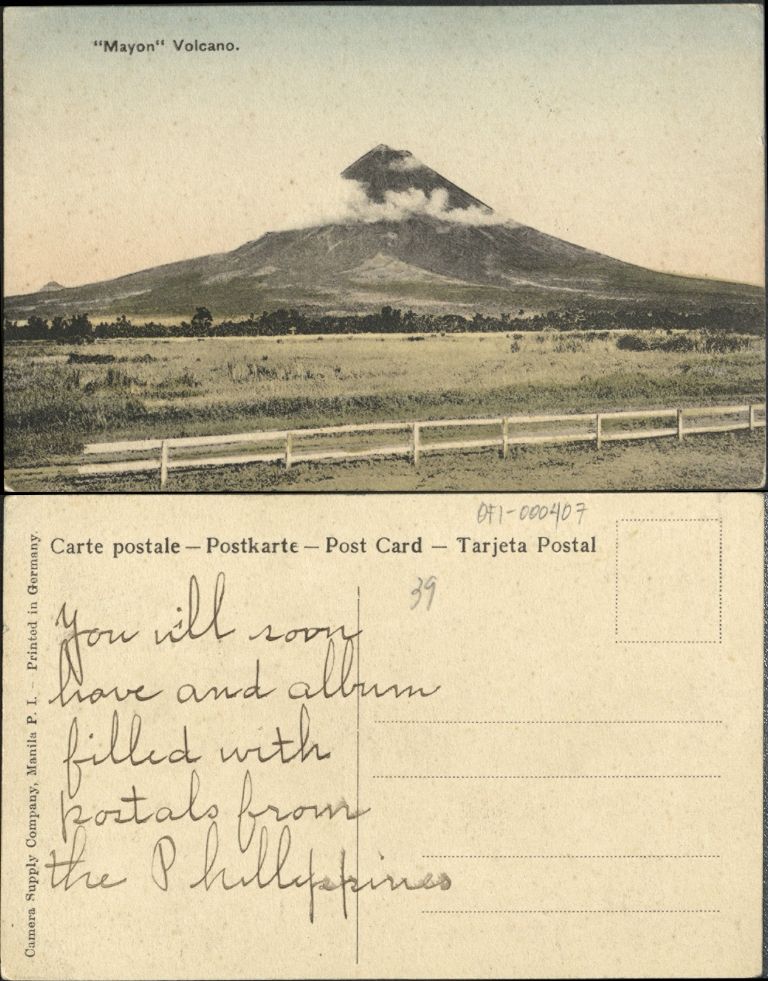 "Mayon" Volcano.
OF1-000407
Carte postale — Postkarte — Post Card — Tarjeta Postal
39
You will soon
have and album
filled with
postals from
the Phillippines
Camera Supply Company, Manila P. I. — Printed in Germany.